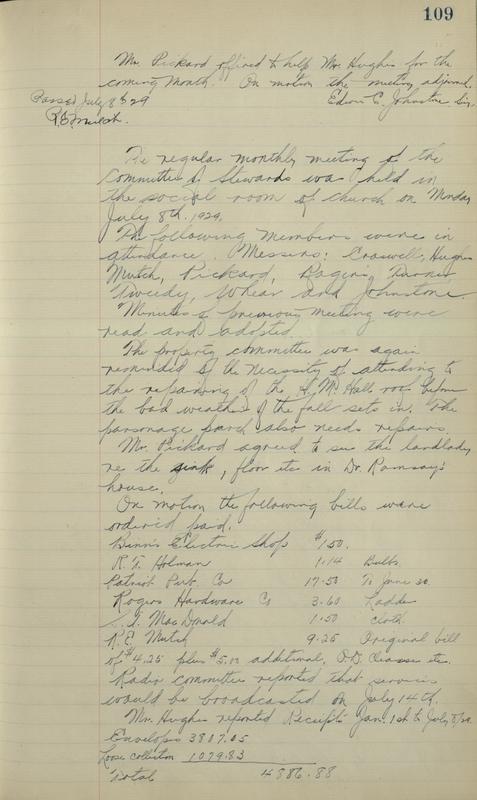 109
Mr. Pickard offered to help Mr. Hughes for the
coming month. On motion the meeting adjourned.
Passed July 8th 29
Edwin C. Johnstone Sec.
R.E. Mutch.
The regular monthly meeting of the
Committee of Stewards was held in
the social room of church on Monday
July 8th. 1929.
The following members were in
attendance. Messrs: Craswell, Hughes
Mutch, Pickard, Rogers, Turner
Tweedy, Whear and Johnstone.
Minutes of previous meeting were
read and adopted.
The property committee was again
reminded of the necessity of attending to
the repairing of the H. M. Hall roof before
the bad weather of the fall sets in. The
parsonage porch also needs repairs.
Mr. Pickard agreed to see the landlady
re the sink, floor etc in Dr. Ramsay's
house.
On motion the following bills were
ordered paid.
Binn's Electric Shop $1.50.
R. T. Holman 1.14 Bulbs.
Patriot Pub. Co 17.50 To June 30.
Rogers Hardware Co 3.60 Ladder
S. T. MacDonald 1.50 cloth
R. E. Mutch 9.25 Original bill
of $4.25 plus $5.00 additional, etc.
Radio committee reported that services
would be broadcasted on July 14th.
Mr. Hughes reported Receipts Jan. 1st to July 8/29.
Envelopes 3807.05
Loose collection 1079.83
Total 4886.88